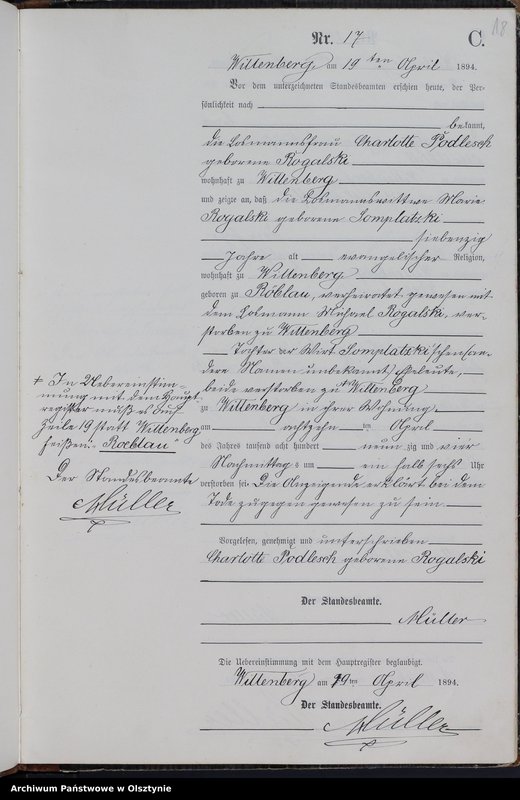 18
Nr. 17 C.
Wittenberg am 19 ten April 1894.
Vor dem unterzeichneten Standesbeamten erschien heute, der Per-
sönlichkeit nach
bekannt,
die Losmannsfrau Charlotte Podlesch
geborene Rogalski
wohnhaft zu Wittenberg
und zeigte an, daß die Losmannswittwe Marie
Rogalski geborene Somplatzki
siebenzig
Jahre alt evangelischer Religion,
wohnhaft zu Wittenberg
geboren zu Röblau, verheiratet gewesen mit
dem Losmann Michael Rogalski, ver-
storben zu Wittenberg
Tochter der Wirt Somplatzki'schen (an-
dere Namen unbekannt) Eheleute,
beide verstorben zu + Wittenberg
zu Wittenberg in ihrer Wohnung
am achtzehn ten April
des Jahres tausend acht hundert neun zig und vier
Nachmittags um ein halb sechs Uhr
verstorben sei. Die Anzeigende erklärt bei dem
Tode zugegen gewesen zu sein
Vorgelesen, genehmigt und unterschrieben
Charlotte Podlesch geborene Rogalski
Der Standesbeamte.
Müller
Die Uebereinstimmung mit dem Hauptregister beglaubigt.
Wittenberg am 19ten April 1894.
Der Standesbeamte.
Müller
+ In Uebereinstim-
mung mit dem Haupt-
register muß es auf
Zeile 19 statt Wittenberg
heißen: "Roeblau"
Der Standesbeamte
Müller
Archiwum Państwowe w Olsztynie